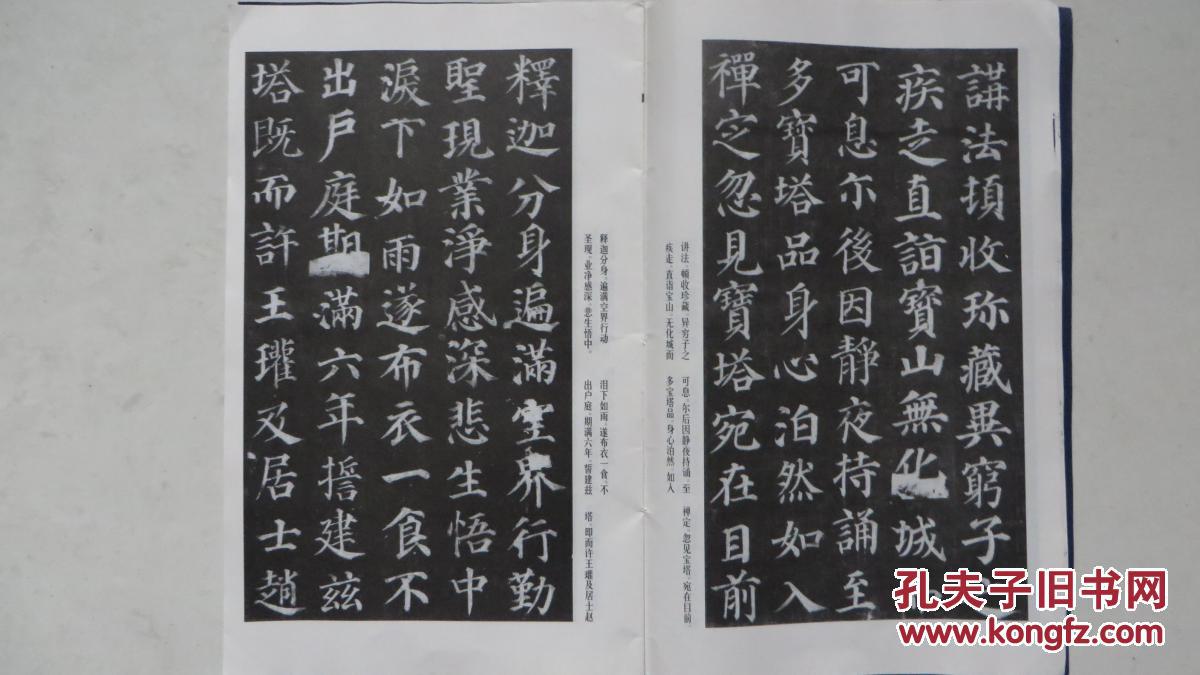 講法頓收珎藏異窮子之
疾走直詣寶山無化城
可息尒後因靜夜持誦至
多寶塔品身心泊然如入
禪定忽見寶塔宛在目前
讲法，顿收珍藏，异穷子之
疾走，直诣宝山，无化城而
可息。尔后因静夜持诵，至
多宝塔品，身心泊然，如入
禅定。忽见宝塔，宛在目前。
釋迦分身遍滿空界行勤
聖現業淨感深悲生悟中
淚下如雨遂布衣一食不
出戶庭期滿六年誓建兹
塔既而許王瓘及居士趙
释迦分身，遍满空界行动
圣现，业净感深，悲生悟中。
泪下如雨，遂布衣一食，不
出户庭，期满六年，誓建兹
塔，即而许王瓘及居士赵
孔夫子旧书网
www.kongfz.com